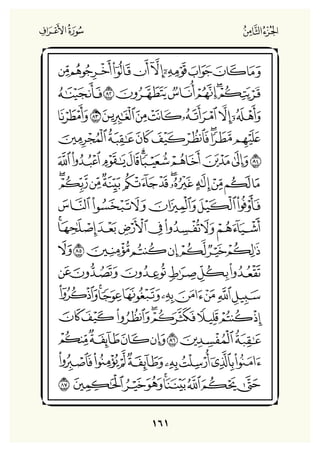 سُورَةُ الأَعْرَافِ الجُزْءُ الثَّامِنُ
وَمَا كَانَ جَوَابَ قَوْمِهِ إِلَّا أَنْ قَالُوا أَخْرِجُوهُمْ مِنْ
قَرْيَتِكُمْ إِنَّهُمْ أُنَاسٌ يَتَطَهَّرُونَ ٨٢ فَأَنْجَيْنَاهُ
وَأَهْلَهُ إِلَّا امْرَأَتَهُ كَانَتْ مِنَ الْغَابِرِينَ ٨٣ وَأَمْطَرْنَا
عَلَيْهِمْ مَطَرًا فَانْظُرْ كَيْفَ كَانَ عَاقِبَةُ الْمُجْرِمِينَ
٨٤ وَإِلَى مَدْيَنَ أَخَاهُمْ شُعَيْبًا قَالَ يَا قَوْمِ اعْبُدُوا اللَّهَ
مَا لَكُمْ مِنْ إِلَهٍ غَيْرُهُ قَدْ جَاءَتْكُمْ بَيِّنَةٌ مِنْ رَبِّكُمْ
فَأَوْفُوا الْكَيْلَ وَالْمِيزَانَ وَلَا تَبْخَسُوا النَّاسَ
أَشْيَاءَهُمْ وَلَا تُفْسِدُوا فِي الْأَرْضِ بَعْدَ إِصْلَاحِهَا
ذَلِكُمْ خَيْرٌ لَكُمْ إِنْ كُنْتُمْ مُؤْمِنِينَ ٨٥ وَلَا
تَقْعُدُوا بِكُلِّ صِرَاطٍ تُوعِدُونَ وَتَصُدُّونَ عَنْ
سَبِيلِ اللَّهِ مَنْ آمَنَ بِهِ وَتَبْغُونَهَا عِوَجًا وَاذْكُرُوا
إِذْ كُنْتُمْ قَلِيلًا فَكَثَّرَكُمْ وَانْظُرُوا كَيْفَ كَانَ
عَاقِبَةُ الْمُفْسِدِينَ ٨٦ وَإِنْ كَانَ طَائِفَةٌ مِنْكُمْ
آمَنُوا بِالَّذِي أُرْسِلْتُ بِهِ وَطَائِفَةٌ لَمْ يُؤْمِنُوا فَاصْبِرُوا
حَتَّى يَحْكُمَ اللَّهُ بَيْنَنَا وَهُوَ خَيْرُ الْحَاكِمِينَ ٨٧
١٦١